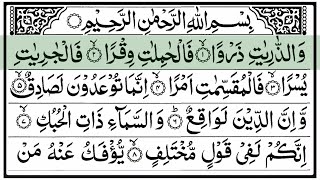 بِسْمِ اللّٰهِ الرَّحْمٰنِ الرَّحِيْمِ
وَالذّٰرِيٰتِ ذَرْوًا ۙ﴿۱﴾ فَالْحٰمِلٰتِ وِقْرًا ۙ﴿۲﴾ فَالْجٰرِيٰتِ
يُسْرًا ۙ﴿۳﴾ فَالْمُقَسِّمٰتِ اَمْرًا ۙ﴿۴﴾ اِنَّمَا تُوْعَدُوْنَ لَصَادِقٌ ۙ﴿۵﴾
وَّاِنَّ الدِّيْنَ لَوَاقِعٌ ؕ﴿۶﴾ وَالسَّمَآءِ ذَاتِ الْحُبُكِ ۙ﴿۷﴾
اِنَّكُمْ لَفِيْ قَوْلٍ مُّخْتَلِفٍ ۙ﴿۸﴾ يُّؤْفَكُ عَنْهُ مَنْ